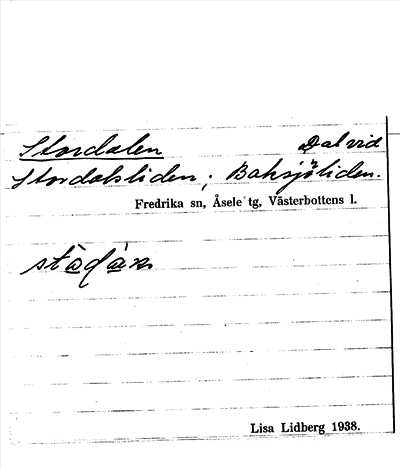 Stordalen Dal vid
Stordalsliden; Baksjöliden.
Fredrika sn, Åsele tg, Västerbottens l.
Lisa Lidberg 1938.